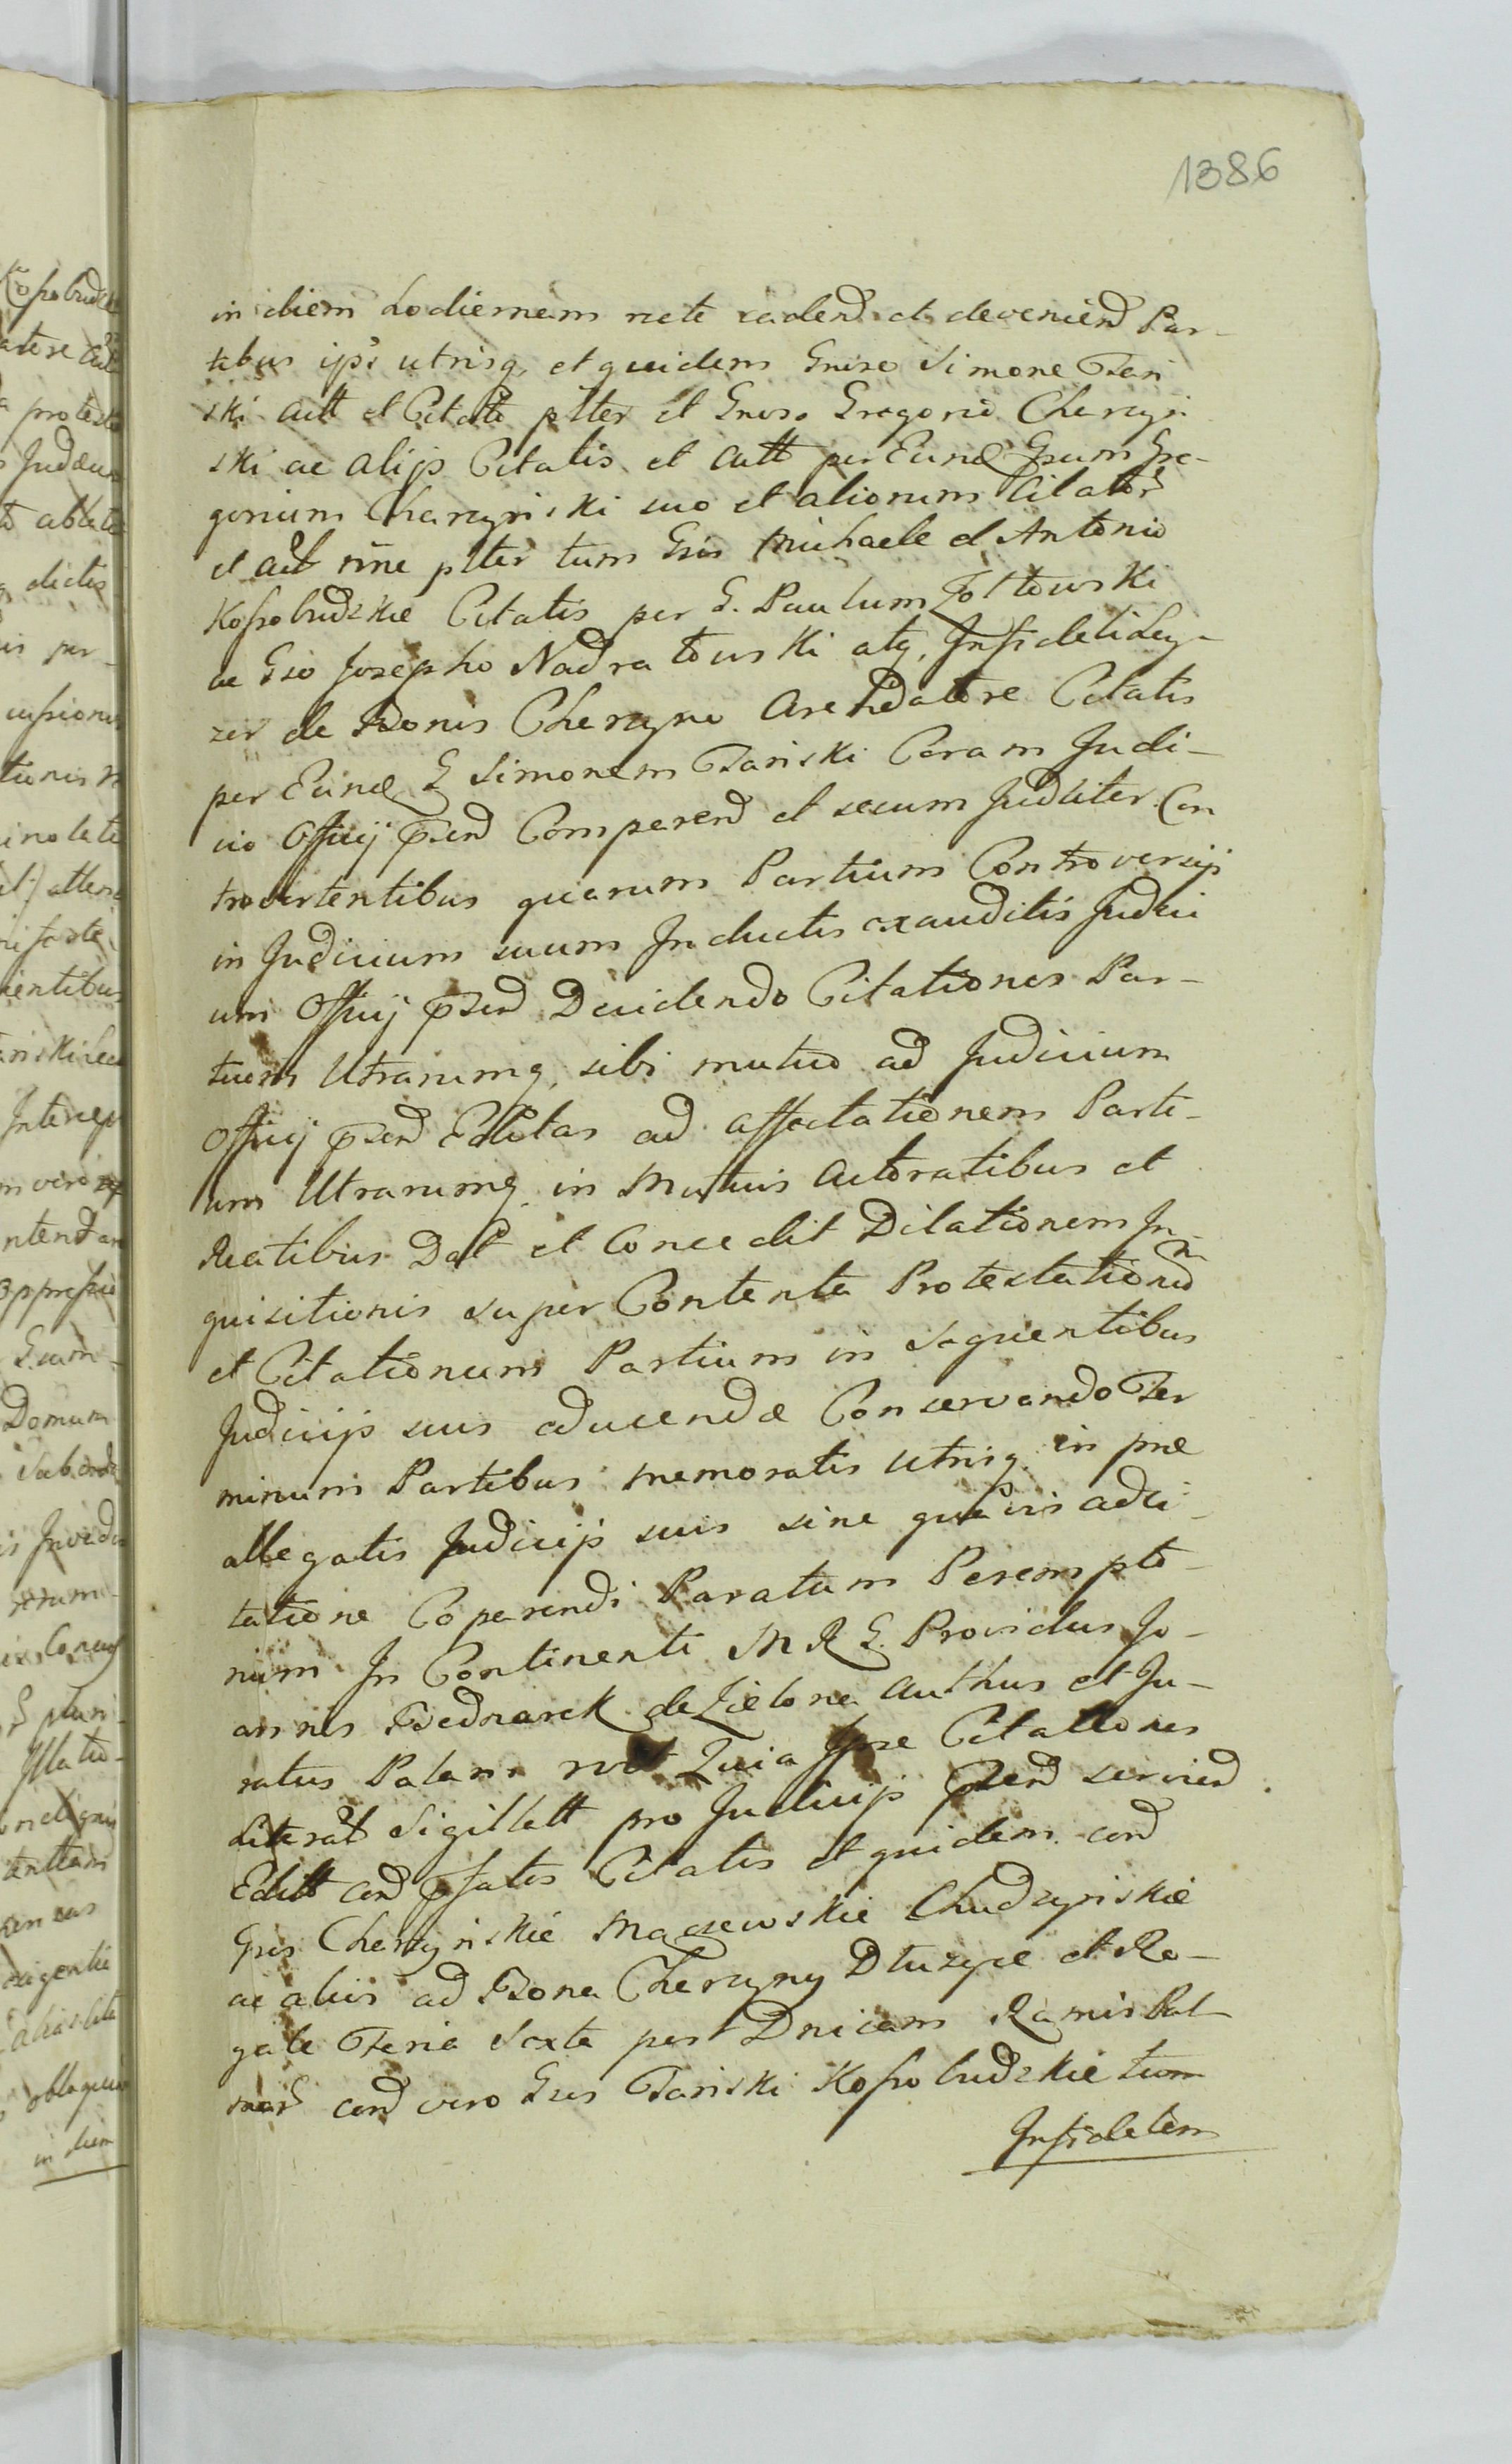 1386
in diem hodiernam recte cadend et deveniend Par-
tibus ipsis utrisq, et quidem Gnreso Simone Tań
ski Actt et Citato plter et Gneso Gregorio Chercyń
ski ac alijs Citatis et Actt per Eund Gsum Gre-
gorium Chercyński suo et aliorum Citator
et Act nne plter tum Gsis Michaele et Antonio
Kossobudzkie Citatis per G. Paulum Żołtowski
ac Gso Josepho Nadratowski atq, Infideli Ley-
zer de Bonis Chercyno Arendatore Citatis
per Eund G Simonem Tański Coram Judi-
cio Officij psend Comparend et secum Judliter Con
trovertentibus quarum Partium Controversijs
in Judicium suum Inductis exauditis Judici
um Officij psend Decidendo Citationes Par-
tium Utrarumq, sibi mutuo ad Judicium
Officij psend Editas ad affectationem Parti-
um Utrarumq, in Mutuis Actoratibus et
Reatibus Dat et Concedit Dilationem In-
quisitionis super Contenta Protestationu
et Citationum Partium in Sequentibus
Judicijs suis aducendæ Conservando Ter
minum Partibus memoratis utrisq, in præ
allegatis Judicijs suis sine quavis adci-
tatione Coparendi Paratum Perempto-
rium In Continenti M R G. Providus Jo-
annes Bednarek de Zielona Authus et Ju-
ratus Palam Quia Ipse Citationes
Literat Sigillatt pro Judicijs psend serviend
Editt cond psatis Citatis et quidem cond
Gsis Chercyńskie Maczewskie Chudzyńskie
ac aliis ad Bona Chercyny Dłuzyce et Ro-
gale Feria Sexta post Dnicam Ramis Pal-
mar cond vero Gsis Tański Kossobudzkie tum
Infidelem